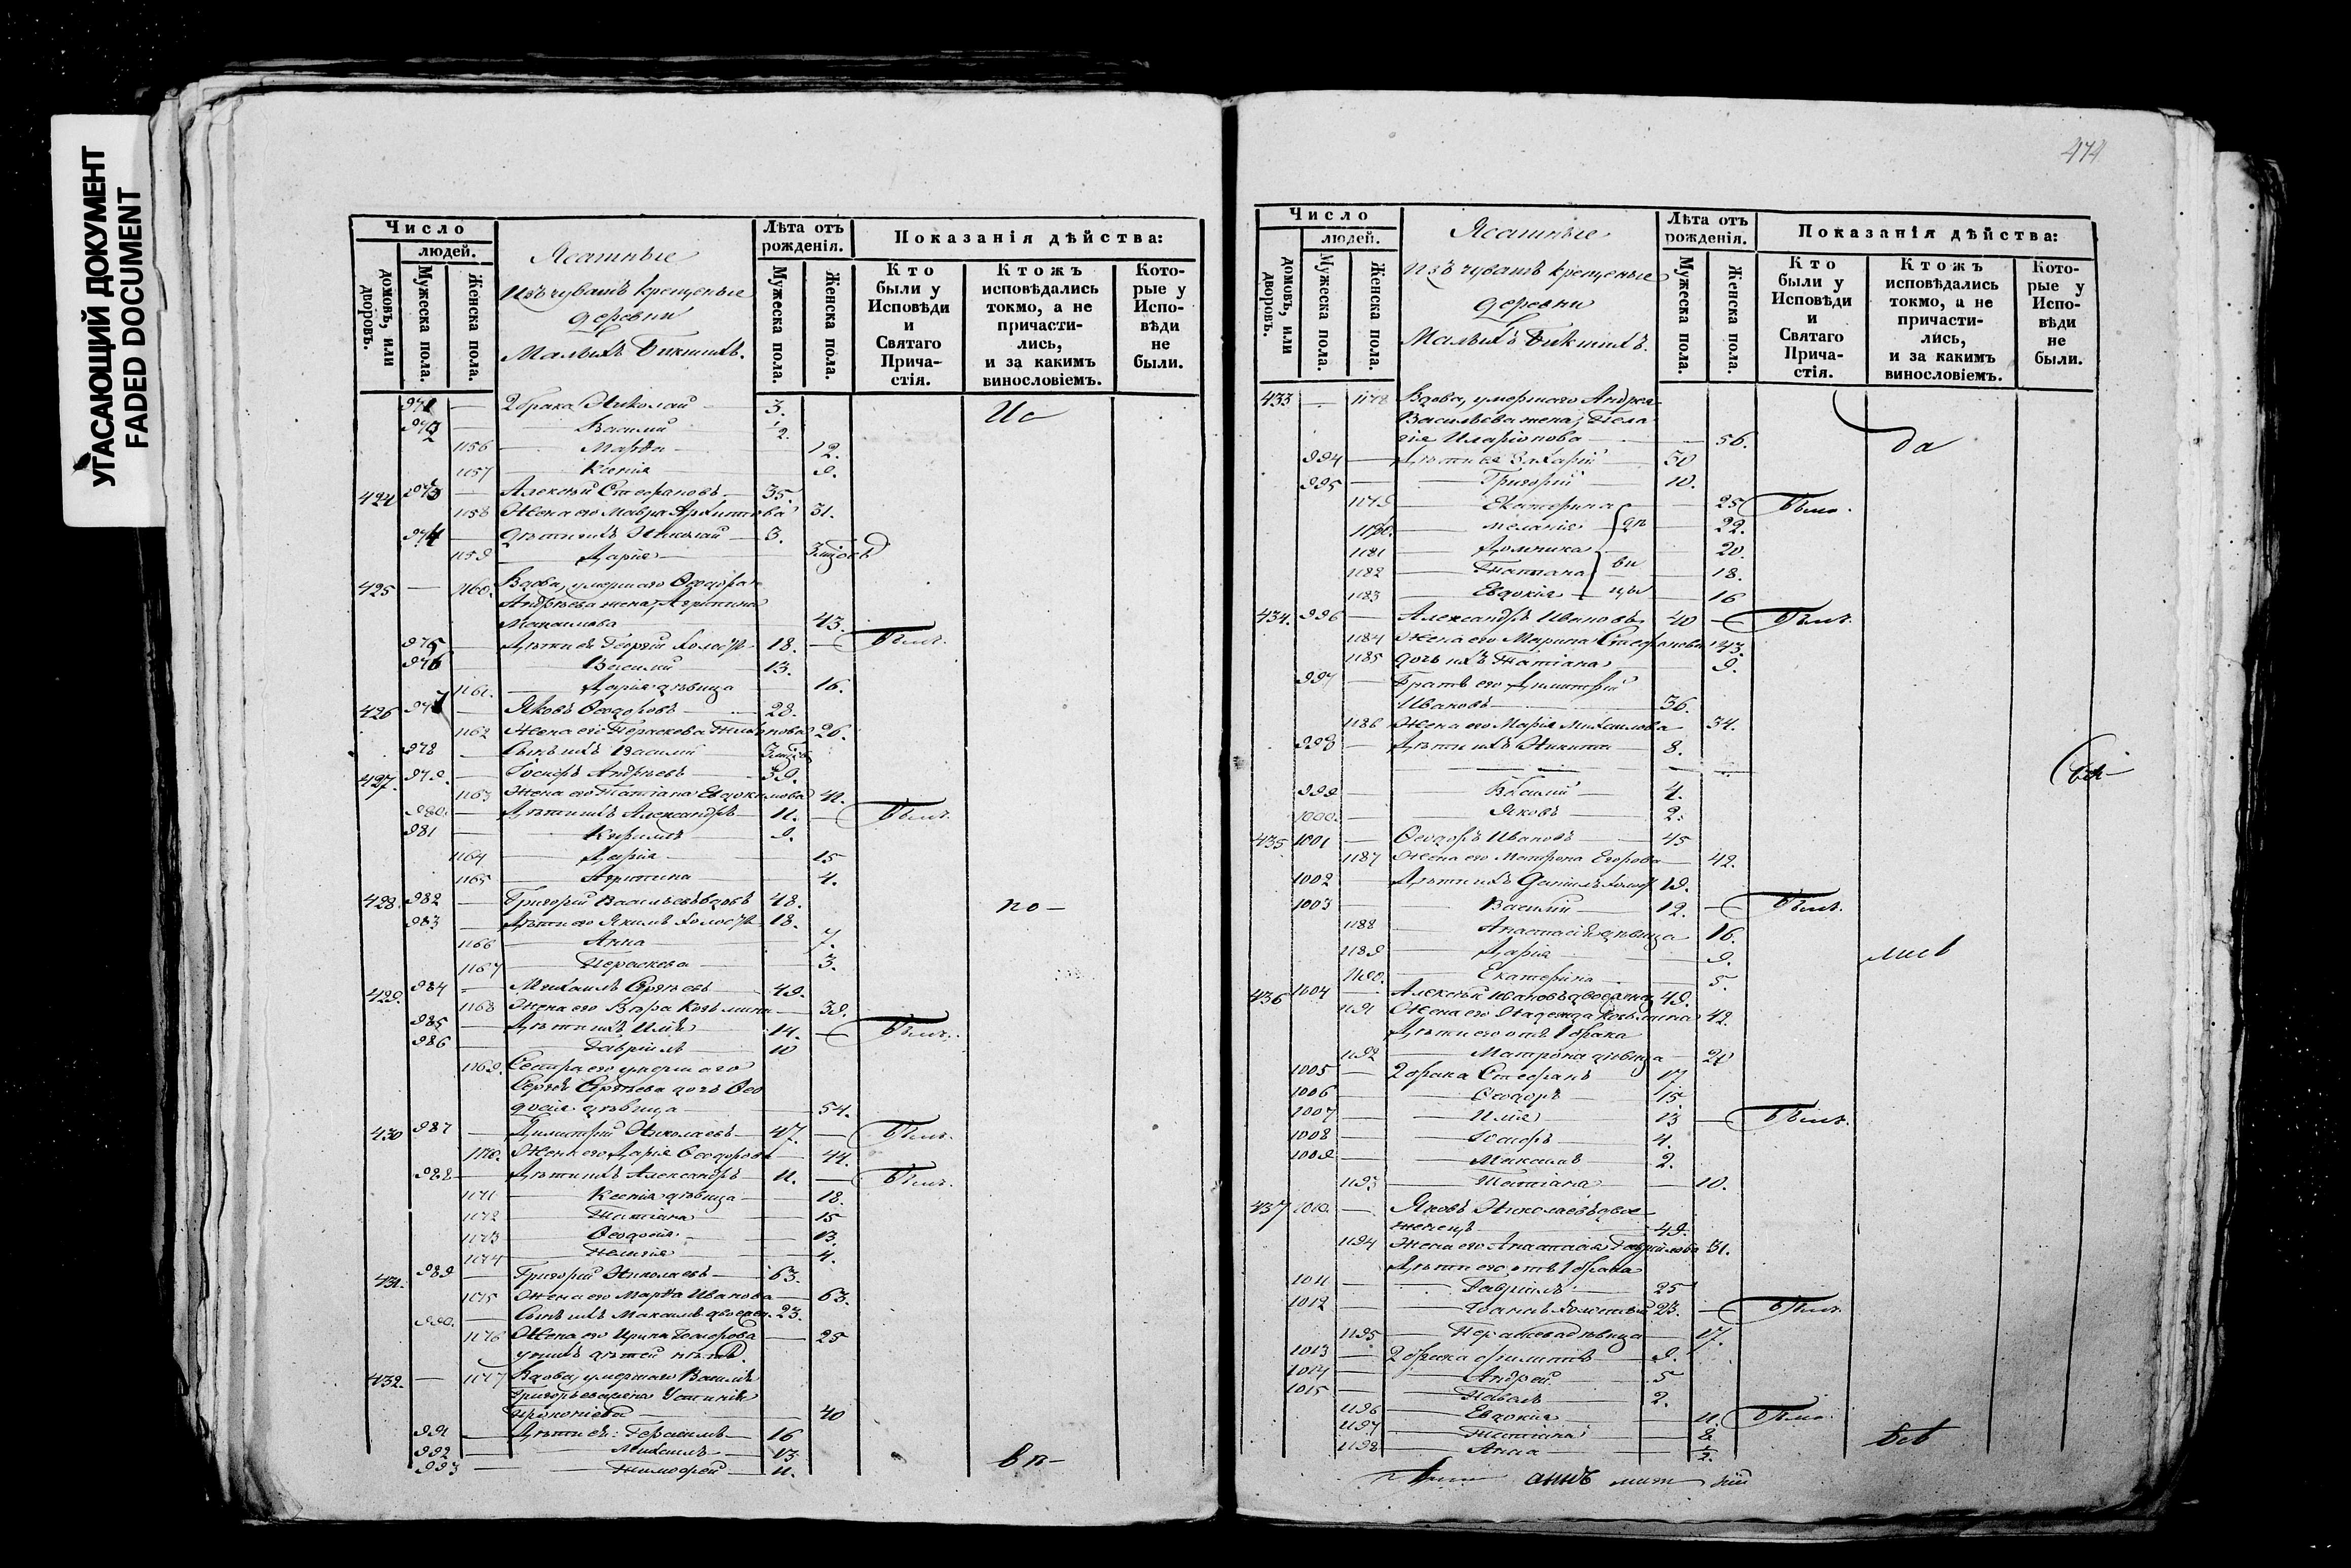 УГАСАЮЩИЙ ДОКУМЕНТ
FADED DOCUMENT
Число
людей.
домовъ, или дворовъ.
Мужеска пола.
Женска пола.
Ясашные
изъ чувашъ крещеные
деревни
Малыхъ Бикшихъ.
Лѣта отъ рожденія.
Мужеска пола.
Женска пола.
Показанія дѣйства:
Кто были у Исповѣди и Святаго Причастія.
Ктожъ исповѣдались токмо, а не причастились, и за какимъ винословіемъ.
Которые у Исповѣди не были.
971 — 2 брака Николай 3.
972 — Василий ½.
1156 Марѳа 12.
1157 Ксенія 9.
424 973 — Алексѣй Стефановъ 35.
1158 Жена его Мавра Архиппова 31.
974 — Дѣти ихъ Николай 3.
1159 Дарія
425 — 1160. Вдова, умершаго Ѳеодора
Андрѣева жена, Агрипина
43.
975 — Дѣти ея Георгій холостъ 18. — Былъ.
976 — Василий 13.
1161. Дарія дѣвица 16.
426 977 — Яковъ Ѳеодоровъ 28.
1162 Жена его Параскева 26.
978 — Сынъ ихъ Василий
427. 979. — Іосифъ Андрѣевъ 39.
1163 Жена его Татіана Евдокимова 41.
980. — Дѣти ихъ Александръ 11. — Былъ.
981 — Кирилъ 9.
1164 Дарія 15
1165 Агрипина 4.
428. 982 — Григорій Васильевъ вдовъ 48.
983 — Дѣти его Якимъ холостъ 18.
1166 Анна 7.
1167 Параскева 3.
429. 984 — Михаилъ Сергѣевъ 49.
1168 Жена его Вѣра Козьмина 39.
985 — Дѣти ихъ Илья 14. — Былъ.
986 — Гавріилъ 10
1169. Сестра его умершаго
Сергѣя Сергѣева дочь Ѳео
досія дѣвица 54.
430 987 — Димитрій Николаевъ 47. — Былъ.
1170. Жена его Дарія Ѳеодорова 44.
988 — Дѣти ихъ Александръ 11. — Былъ.
1171 Ксенія дѣвица 18.
1172 Татіана 15
1173 Ѳеодосія 13.
1174 Пелагія 4.
431. 989 — Григорій Николаевъ 63.
1175 Жена его Марѳа Иванова 63.
990. — Сынъ ихъ Максимъ 23.
1176 Жена его Ирина 25
у нихъ дѣтей нѣтъ.
432. — 1177 Вдова, умершаго Василія
Григорьева жена Устинія
Прокопіева 40
991 — Дѣти ея: Герасимъ 16
992 — Михаилъ 13
993 — Тимоѳей 11.
Ис
по-
вѣ-
474
Число
людей.
домовъ, или дворовъ.
Мужеска пола.
Женска пола.
Ясашные
изъ чувашъ крещеные
деревни
Малыхъ Бикшихъ.
Лѣта отъ рожденія.
Мужеска пола.
Женска пола.
Показанія дѣйства:
Кто были у Исповѣди и Святаго Причастія.
Ктожъ исповѣдались токмо, а не причастились, и за какимъ винословіемъ.
Которые у Исповѣди не были.
433 — 1178 Вдова, умершаго Андрея
Васильева жена, Пела
гія Иларіонова 56.
994 — Дѣти ея Захарій 30
995 — Григорій 10.
1179 Екатерина 25 Была.
1180. Меланія 22.
1181 Домника 20.
1182 Татіана 18.
1183 Евдокія 16
434. 996 — Александръ Ивановъ 40 — Былъ.
1184 Жена его Марина Стефанова 43.
1185 дочь ихъ Татіана 9.
997 — Братъ его Димитрій
Ивановъ 36.
1186 Жена его Марія Михаилова 34.
998 — Дѣти ихъ Никита 8.
999 — Василий 4.
1000. — Яковъ 2.
435. 1001 — Ѳеодоръ Ивановъ 45
1187 Жена его Матрона Егорова 42.
1002 — Дѣти ихъ Даніилъ холостъ 19.
1003 — Василий 12. — Былъ.
1188 Анастасія дѣвица 16.
1189 Дарія 9.
1190. Екатерина 5.
436 1004 — Алексѣй Ивановъ двоеженецъ 49.
1191 Жена его Надежда Козьмина 42.
Дѣти его отъ 1 брака
1192 Матрона дѣвица 21
1005 — 2 брака Стефанъ 17
1006 — Ѳеодоръ 15
1007 — Илія 13 — Былъ.
1008 — Іосифъ 4.
1009 — Максимъ 2.
1193 Татіана 10.
437 1010. — Яковъ Николаевъ двое
женецъ 49.
1194 Жена его Анастасія Гаврилова 31.
Дѣти его отъ 1 брака
1011 — Гавріилъ 25
1012 — Іоаннъ холостый 23. — Былъ.
1195 Параскева дѣвица 17.
1013 — 2 брака Филиппъ 9.
1014 — Андрей 5
1015 — Павелъ 2.
1196 Евдокія 11. Была.
1197 Татіана 8
1198 Анна ½.
да
лись
всѣ